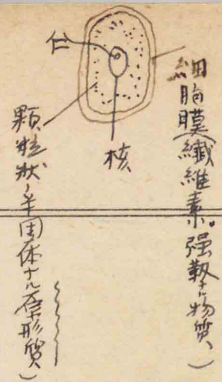 細胞膜(纖維素。强靱ナル物質、)
仁
核
顆粒狀ノ半固体ナル原形質)